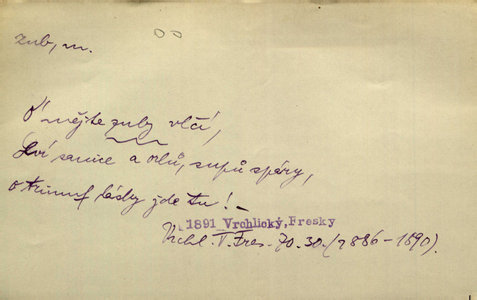 zub, m.
Ó mějte zuby vlčí,
lví sanice a orlů, supů spáry,
o triumf lásky jde tu! –
1891 Vrchlický, Fresky
Vrchl. V. Fres. 70. 30. (1886–1890).